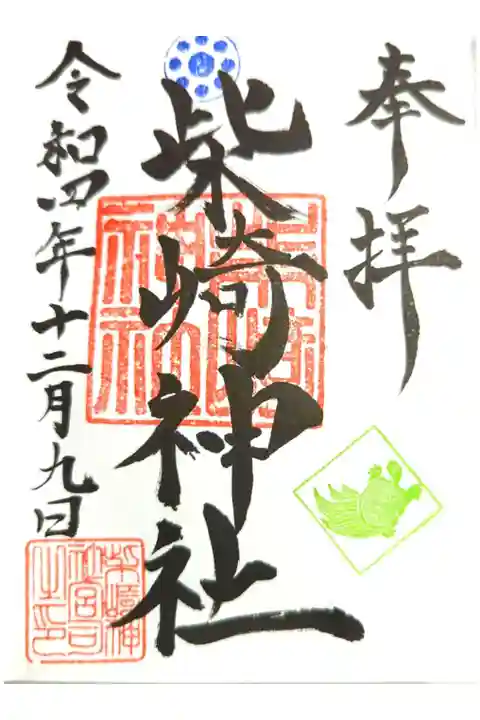 奉拝
柴崎神社
令和四年十二月九日
柴崎神社
柴崎神社宮司之印